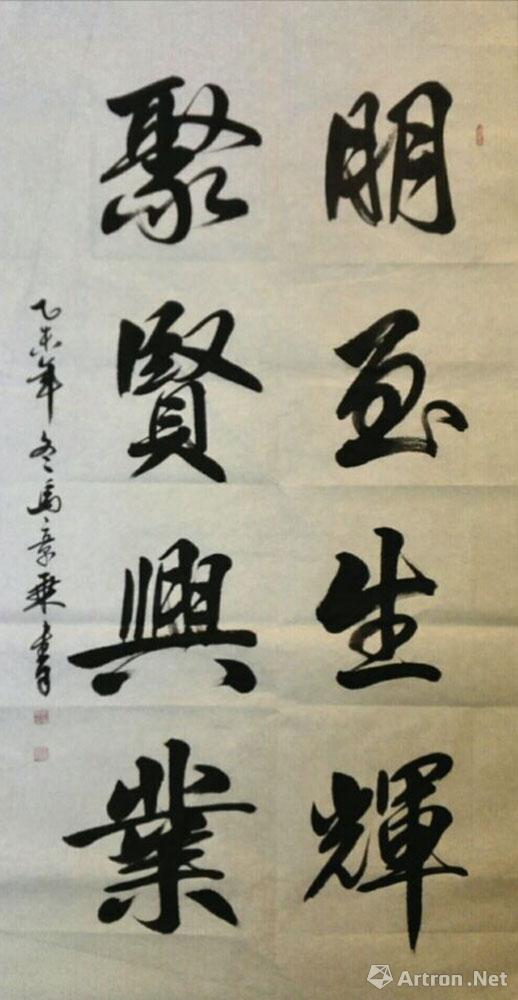 朋至生輝
聚賢興業
乙未年冬馬景乘書
Artron.Net